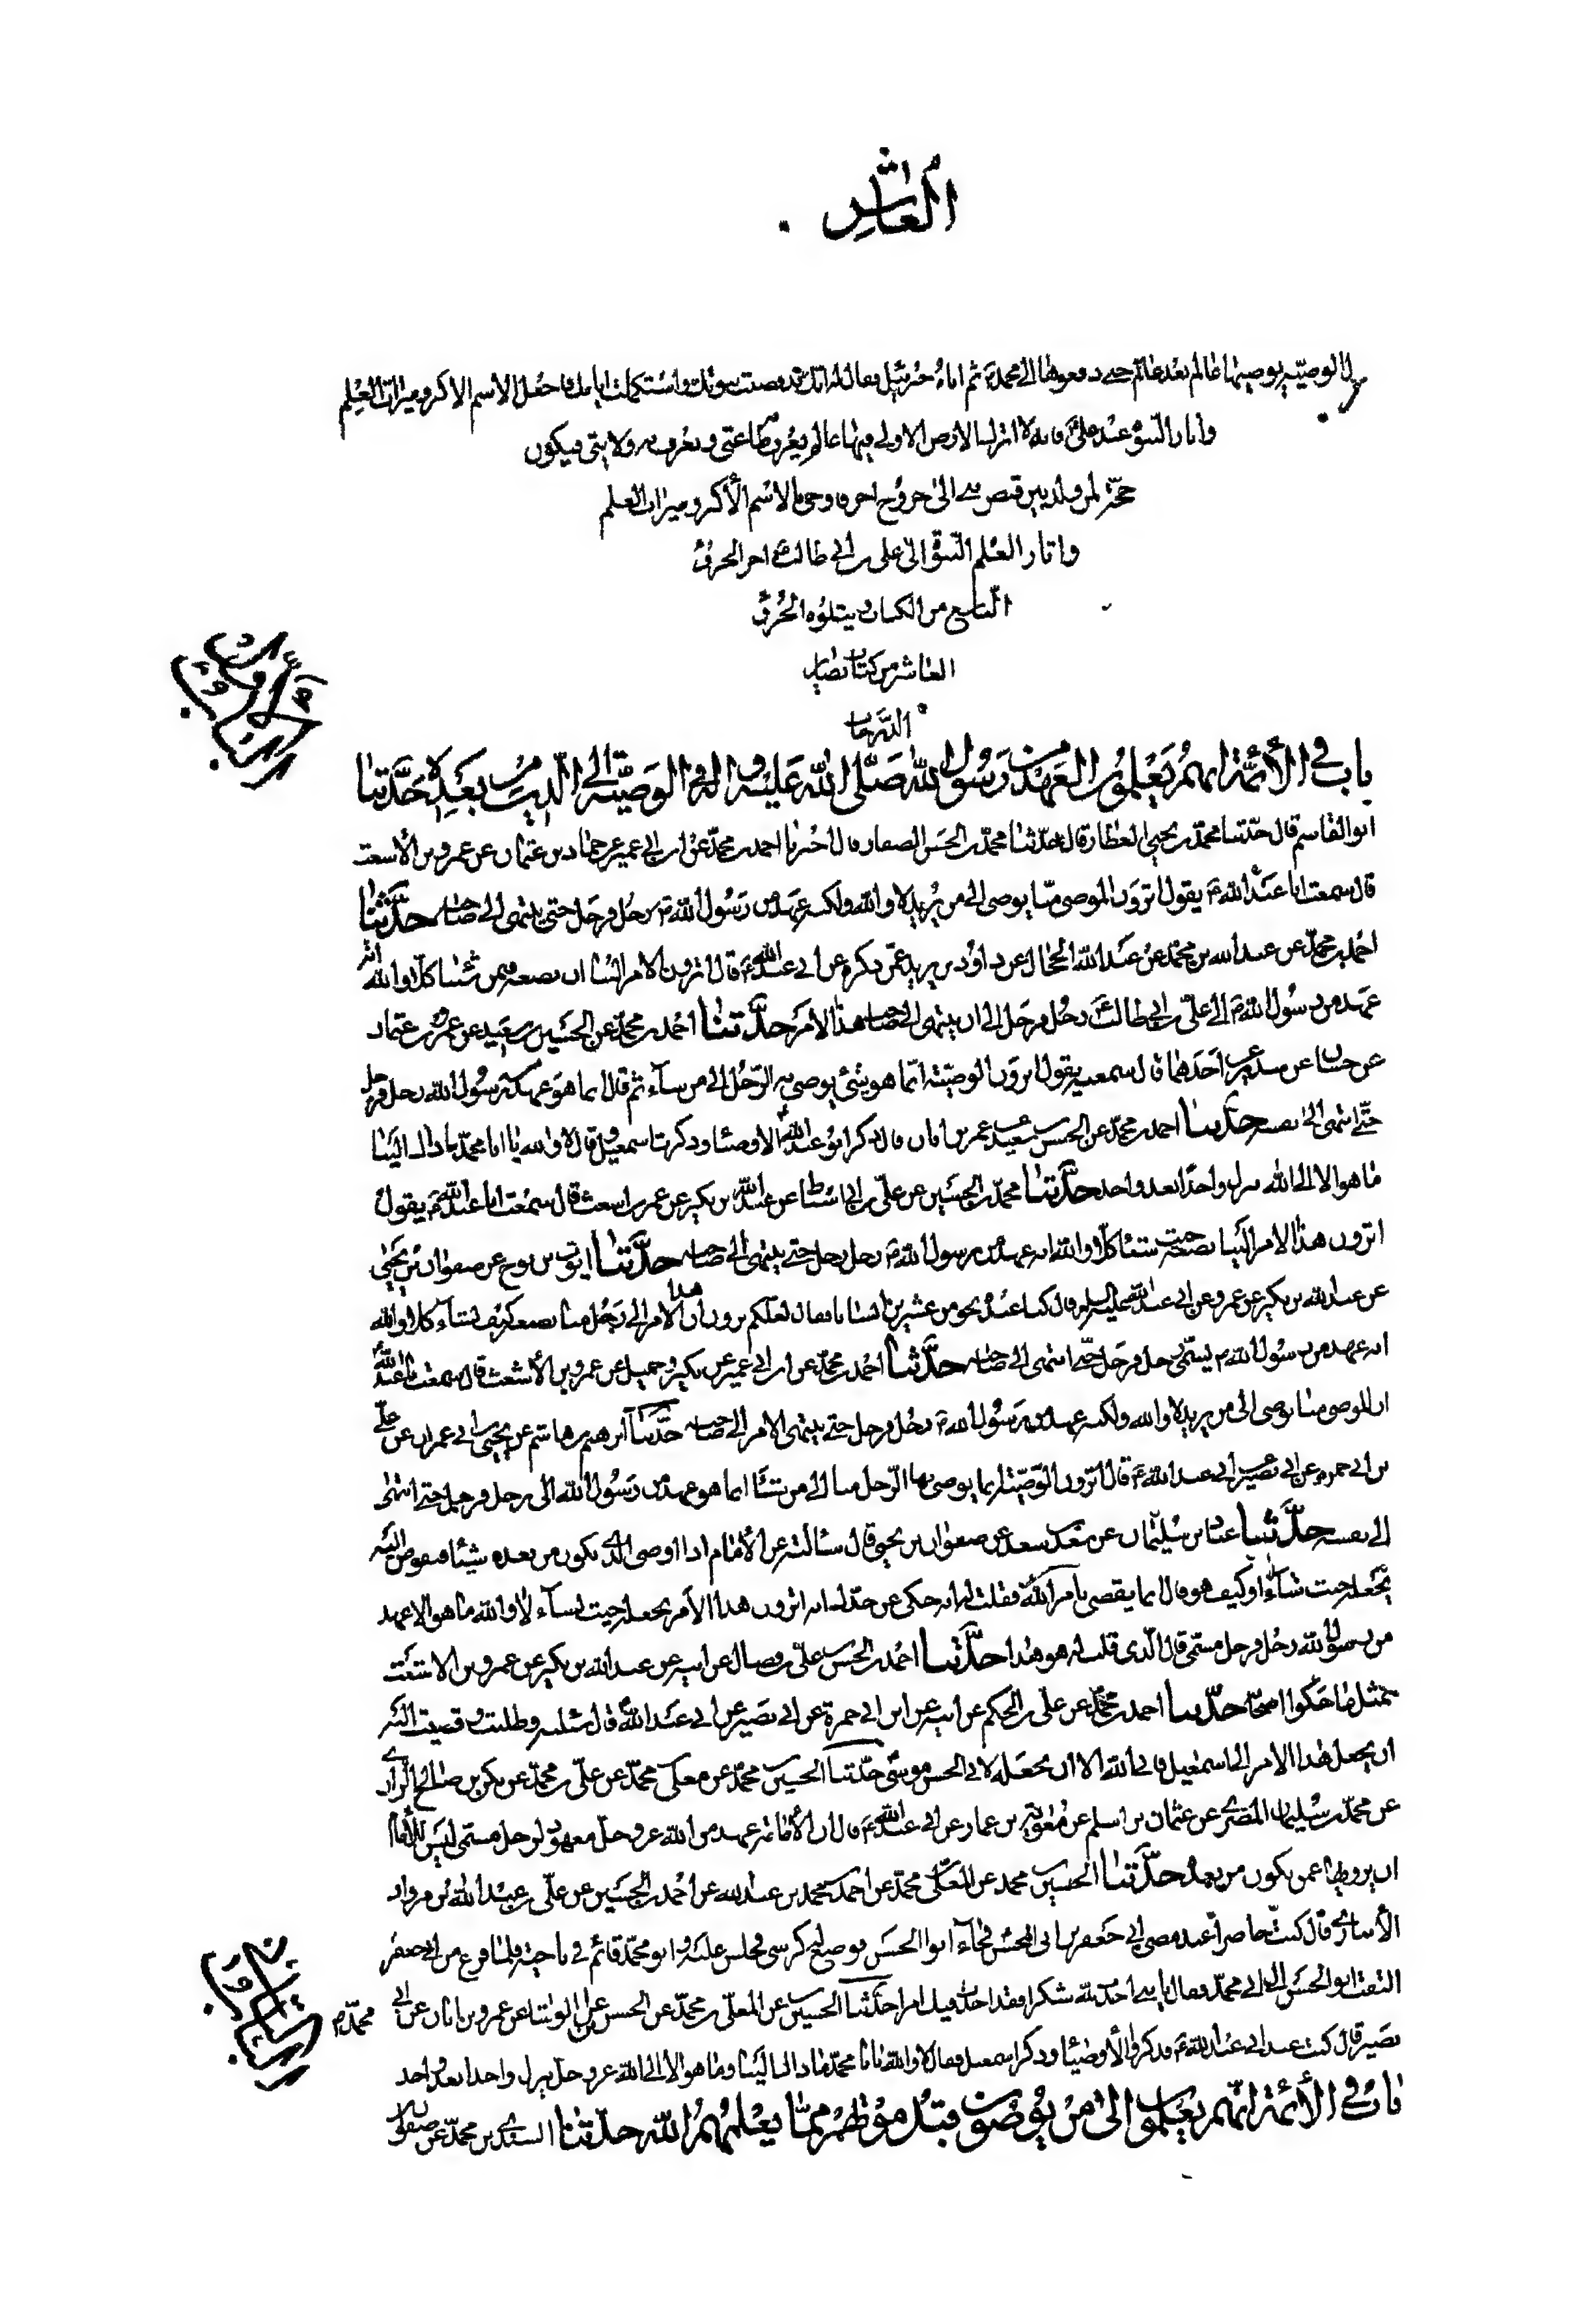 العاشر
بالوصية يوصى بها عالم بعد عالم حتى دفعوها الى محمد ص ثم اتاه جبرئيل فقال له انك قد قضيت نبوتك واستكملت ايامك فاجعل الاسم الاكبر وميراث العلم
واثار النبوة عند على ع فانه لا اترك الارض الا ولى فيها عالم يعرف به طاعتى ويعرف به ولايتى فيكون
حجة لمن ولد بين قبض نبى الى خروج اخر فاوحى بالاسم الأكبر وميراث العلم
واثار العلم النبوة الى على بن ابى طالب ع اخر الجزؤ
التاسع من الكتاب ويتلوه الجزؤ
العاشر من كتاب بصاير
الدرجات
باب فى الأئمة انهم يعلمون العهد من رسول الله صلى الله عليه واله فى الوصية الى الذين من بعده حدثنا
ابو القاسم قال حدثنا محمد بن يحيى العطار قال حدثنا محمد بن الحسن الصفار قال اخبرنا احمد بن محمد عن ابن ابى عمير عن حماد بن عثمان عن عمرو بن الأشعث
قال سمعت ابا عبد الله ع يقول اترون الموصى منا يوصى الى من يريد لا والله ولكنه عهد من رسول الله ص رجل فرجل حتى ينتهى الى صاحبه حدثنا
احمد بن محمد عن عبد الله بن محمد عن عبد الله الحجال عن داود بن يزيد عمن ذكره عن ابى عبد الله ع قال اترون الامر الينا ان نضعه فيمن شئنا كلا والله انه
عهد من رسول الله ص الى على بن ابى طالب ع رجل فرجل الى ان ينتهى الى صاحب هذا الامر حدثنا احمد بن محمد عن الحسين بن سعيد عن عمرو بن عثمان
عن احدهما قال سمعته يقول اترون الوصية انما هو شئ يوصى به الرجل الى من شاء ثم قال انما هو عهد من رسول الله رجل فرجل
حتى انتهى الى نفسه حدثنا احمد بن محمد عن الحسين بن سعيد عن عمر بن ابان قال ذكر ابو عبد الله الاوصياء وذكرت اسمعيل وقال لا والله يا ابا محمد ما ذاك الينا
ما هو الا الى الله ينزل واحدا بعد واحد حدثنا محمد بن الحسين عن على بن اسباط عن عبد الله بن بكير عن عمرو بن اشعث قال سمعت ابا عبد الله ع يقول
اترون هذا الامر الينا نضعه حيث شئنا كلا والله انه عهد من رسول الله ص رجل رجل حتى ينتهى الى صاحبه حدثنا ايوب بن نوح عن صفوان بن يحيى
عن عبد الله بن بكير عن عمرو عن ابى عبد الله عليه السلم قال كنا عنده نحو من عشرين انسانا فقال لعلكم ترون ان هذا الامر الى رجل منا نضعه كيف نشاء كلا والله
انه عهد من رسول الله ص يسمى رجل فرجل حتى انتهى الى صاحبه حدثنا احمد بن محمد عن ابن ابى عمير عن بكير وجميل عن عمرو بن الأشعث قال سمعت ابا عبد الله
ان الموصى منا يوصى الى من يريد لا والله ولكنه عهد من رسول الله ص رجل فرجل حتى ينتهى الامر الى صاحبه حدثنا ابرهيم بن هاشم عن يحيى بن ابى عمران عن على
بن ابى حمزة عن ابى بصير عن ابى عبد الله ع قال اترون الوصية انما يوصى بها الرجل منا الى من شاء انما هو عهد من رسول الله الى رجل فرجل حتى انتهى
الى نفسه حدثنا عباد بن سليمان عن سعد بن سعد عن صفوان بن يحيى قال سالته عن الأمام اذا اوصى الذى يكون من بعده شيئا فيفوض اليه
يجعله حيث شاء او كيف هو قال انما يقضى بامر الله فقلت له انه حكى عن جدك انه اترون هذا الأمر نجعله حيث نشاء لا والله ما هو الا عهد
من رسول الله رجل فرجل مسمى قال الذى قلت له هو هذا حدثنا احمد بن الحسن بن على بن فضال عن ابيه عن عبد الله بن بكير عن عمرو بن الاشعث
بمثل ما حكوا اصحابنا حدثنا احمد بن محمد عن على بن الحكم عن ابيه عن ابن ابى حمزة عن ابى بصير عن ابى عبد الله ع قال سئلته وطلبت وقضيت اليه
ان يجعل هذا الامر الى اسمعيل فابى الله الا ان يجعله لابى الحسن موسى حدثنا الحسين بن محمد عن معلى بن محمد عن على بن محمد عن بكر بن صالح الرازى
عن محمد بن سليمان المصرى عن عثمان بن اسلم عن معوية بن عمار عن ابى عبد الله ع قال ان الأمامة عهد من الله عز وجل معهود لرجل مسمى ليس للامام
ان يزويها عمن يكون من بعده حدثنا الحسين بن محمد عن المعلى بن محمد عن احمد بن محمد بن عبد الله عن احمد بن الحسين عن على بن عبد الله بن مروان
الأنبارى قال كنت حاضرا عند مضى ابى جعفر بن ابى الحسن فجاء ابو الحسن فوضع له كرسى فجلس عليه وابو محمد قائم فى ناحية فلما فرغ من ابى جعفر
التفت ابو الحسن الى ابى محمد فقال يا بنى احدث لله شكرا فقد احدث فيك امرا حدثنا الحسين عن المعلى بن محمد عن الحسن بن على الوشا عن عمرو بن ابان عن ابى
بصير قال كنت عند ابى عبد الله ع فذكروا الأوصياء وذكر اسمعيل فقال لا والله يا ابا محمد ما ذاك الينا وما هو الا الى الله عز وجل ينزل واحدا بعد واحد
باب فى الأئمة انهم يعلمون الى من يوصون قبل موتهم مما يعلمهم الله حدثنا السندى بن محمد عن صفوان